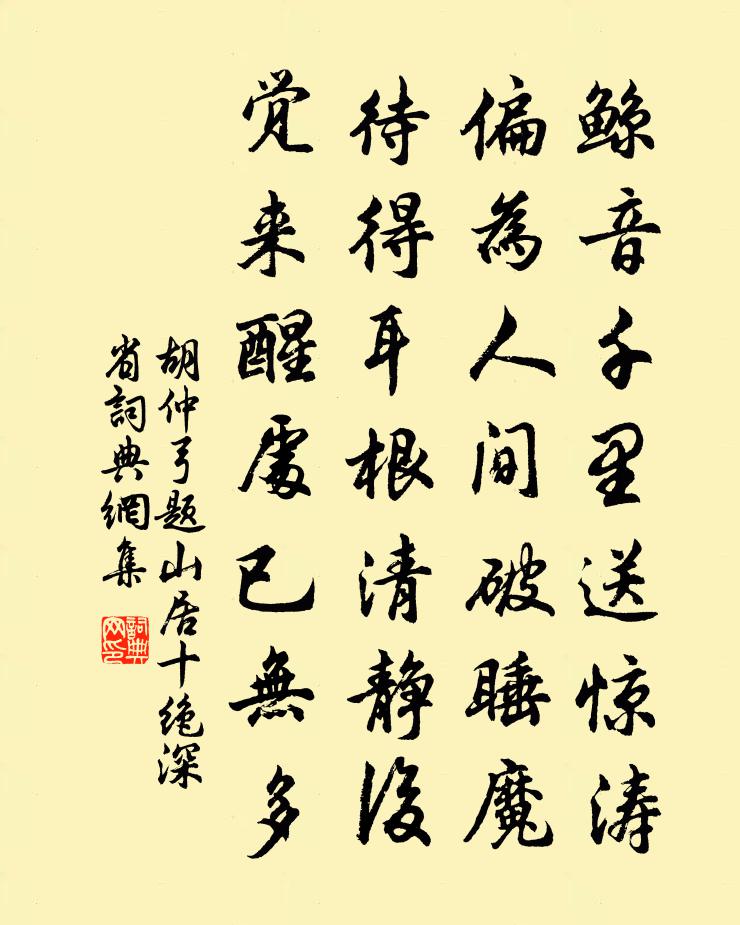 鲸音千里送惊涛
偏為人间破睡魔
待得耳根清静後
觉来醒處已無多
胡仲弓题山居十绝深
省詞典網集
詞典
网印